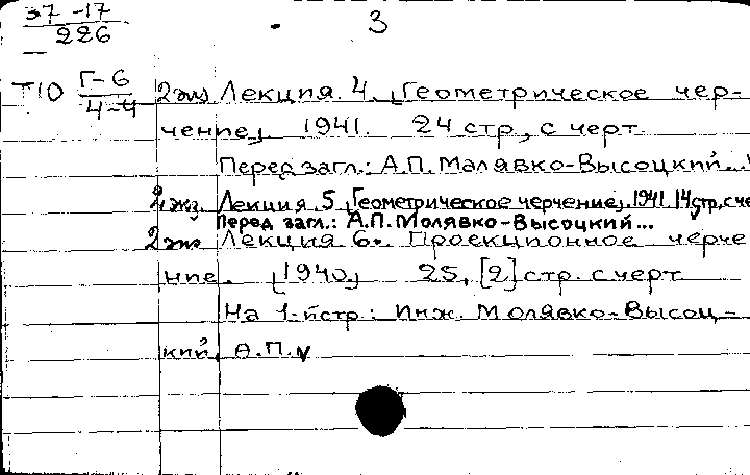 37-17
226
3
Т10 Г-6
4-4
2 экз Лекция. 4. [Геометрическое чер-
чение], 1941. 24 стр, с черт
Перед загл.: А.П. Малявко-Высоцкий...
2 экз. Лекция. 5. [Геометрическое черчение]. 1941 14 стр, с че
Перед загл.: А.П. Молявко-Высоцкий...
2 экз Лекция 6. Проекционное черче
ние. [1940] 25, [2] стр. с черт
На 1-й стр: Инж. Молявко-Высоц-
кий, А.П.